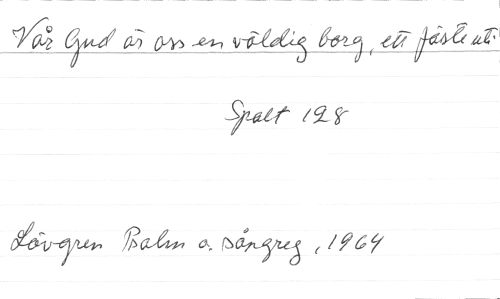 Vår Gud är oss en väldig borg, ett fäste uti
Spalt 128
Lövgren Psalm o. sångreg, 1964